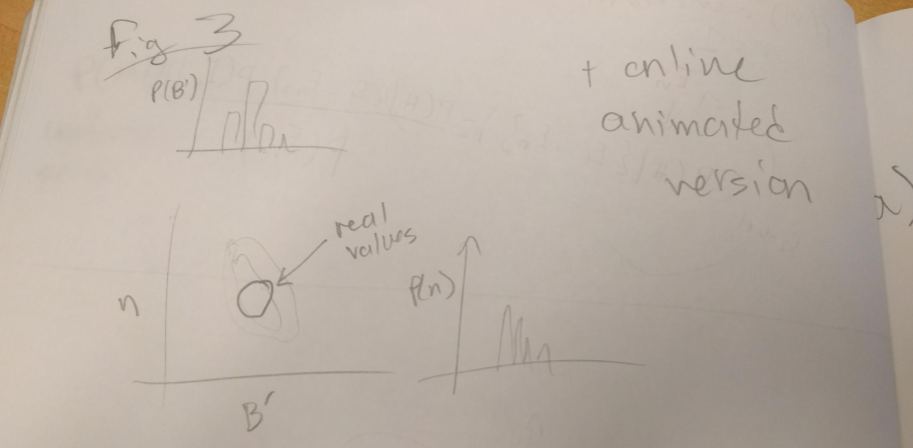 Fig 3
P(B')
+ online
animated
version
real
values
n
B'
P(n)